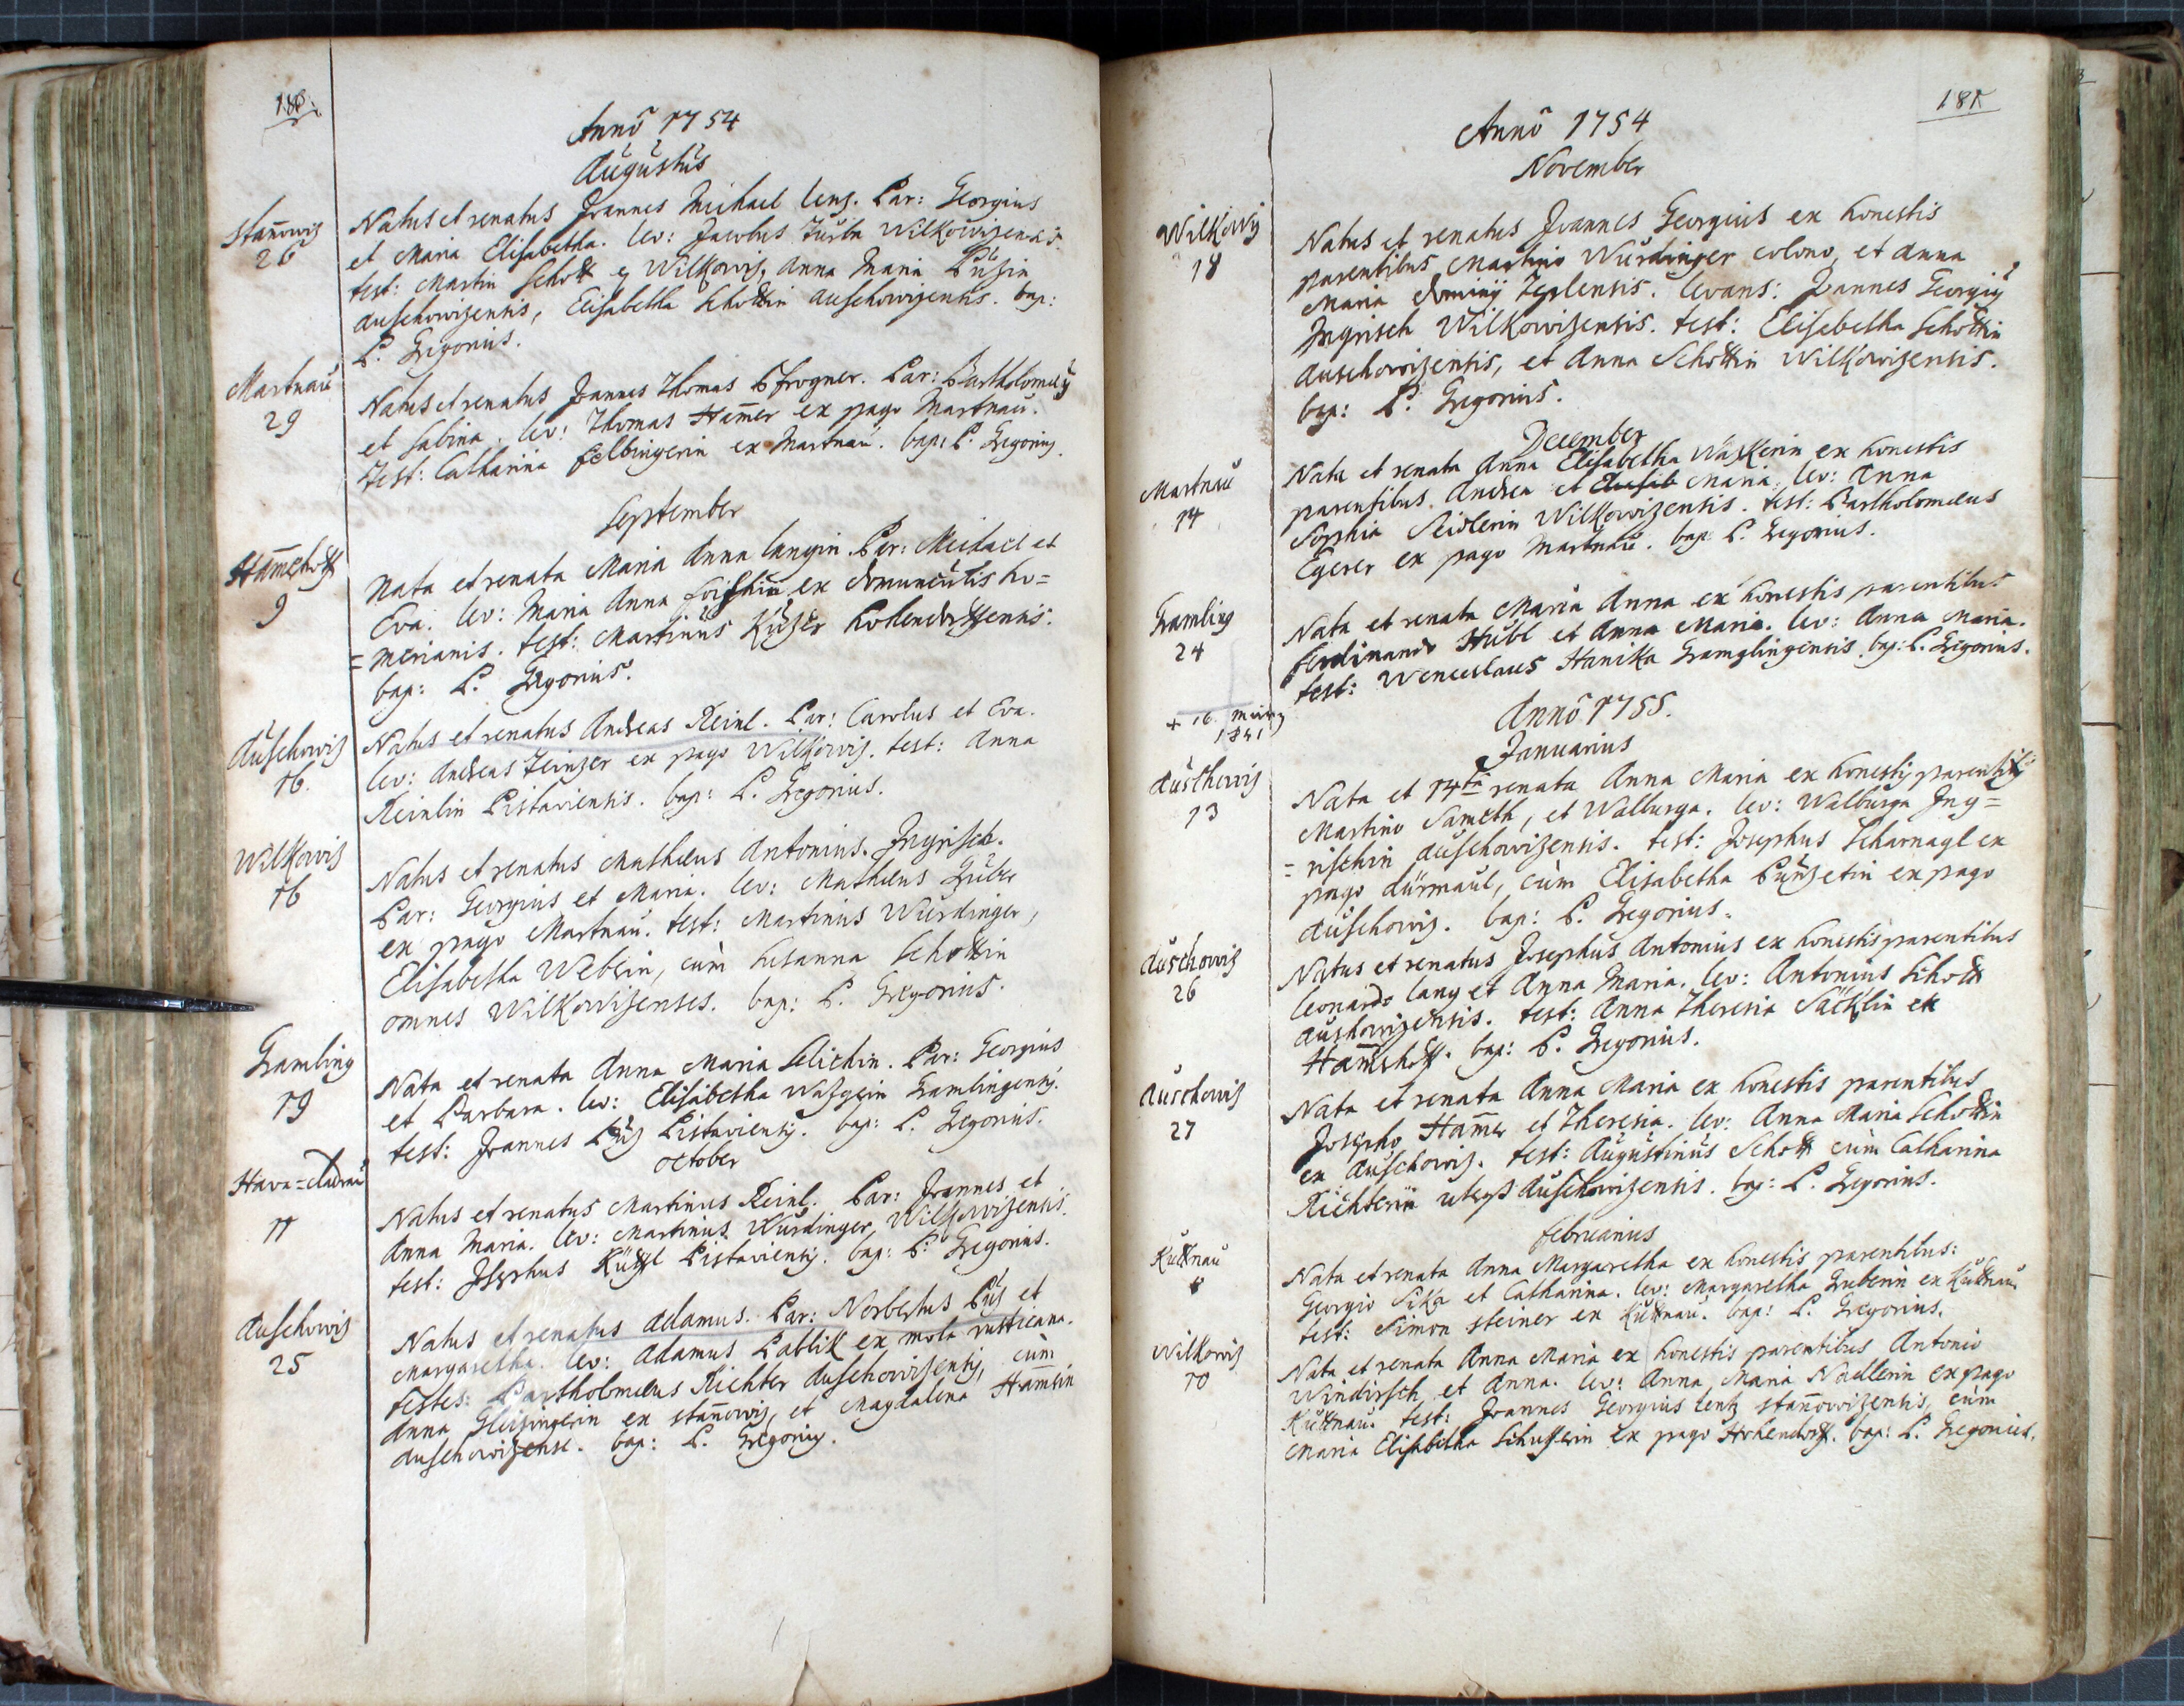 180.
Anno 1754
Augustus
Stañowiz
26
Natus et renatus Joannes Michael Lenz. Par: Georgius
et Maria Elisabetha. lev: Jacobus Turba Wilkowizensis.
test: Martin Schott ex Wilkowiz, Anna Maria
Auschowizensis, Elisabetha Schottin Auschowizensis. bap:
P. Gregorius.
Martnau
29
Natus et renatus Joannes Thomas Pfrogner. Par: Bartholomeus
et Sabina. lev: Thomas Ham̄er ex pago Martnau.
test: Catharina Felbingerin ex Martnau. bap: P. Gregorius.
September
9
Nata et renata Maria Anna Langin. Par: Michael et
Eva. lev: Maria Anna ex domunculis ho=
=merianis. test: Martinus
bap: P. Gregorius.
Auschowiz
16.
Natus et renatus Andreas Reinl. Par: Carolus et Eva.
lev: Andreas Zeinzer ex pago Wilkowiz. test: Anna
Reinlin Pistaviensis. bap: P. Gregorius.
Wilkowiz
16
Natus et renatus Mathaeus Antonius. Ingrisch.
Par: Georgius et Maria. lev: Mathaeus
ex pago Martnau. test: Martinus Würdinger,
Elisabetha Webrin, cùm Susanna Schottin
omnes Wilkowizenses. bap: P. Gregorius.
Gramling
19
Nata et renata Anna Maria. Par: Georgius
et Barbara. lev: Elisabetha Gramlingensis.
test: Joannes Püz Pistaviensis. bap: P. Gregorius.
October
11
Natus et renatus Martinus Reinl. Par: Joannes et
Anna Maria. lev: Martinus Würdinger, Wilkowizensis.
test: Josephus Pistaviensis. bap: P. Gregorius.
Auschowiz
25
Natus et renatus Adamus. Par: Norbertus Püz et
Margaretha. lev: Adamus Pablik ex mola rusticana.
testes: Bartholomaeus Richter Auschowizensis, cùm
Anna ex Stañowiz, et Magdalena Ham̄erin
Auschowizense. bap: P. Gregorius.
181
Anno 1754
November
Wilkowiz
18
Natus et renatus Joannes Georgius ex honestis
parentibus Martino Würdinger colono, et Anna
Maria dominij Teplensis. levans: Joannes Georgius
Ingrisch Wilkowizensis. test: Elisabetha Schottin
Auschowizensis, et Anna Schottin Wilkowizensis.
bap: P. Gregorius.
December
Martnau
14
Nata et renata Anna Elisabetha ex honestis
parentibus Andrea et Maria. lev: Anna
Sophia Seidlerin Wilkowizensis. test: Bartholomaeus
Egerer ex pago Martnau. bap: P. Gregorius.
Gramling
24
Nata et renata Maria Anna ex honestis parentibus
Ferdinando Hübl et Anna Maria. lev: Anna Maria.
test: Wenceslaus Hanika Gramglingensis. bap: P. Gregorius.
Anno 1755.
Januarius
+ 16.
1841
Auschowiz
13
Nata et 14ta renata Anna Maria ex honestis parentibus
Martino Sameth, et Walburga. lev: Walburga Ing=
=rischin Auschowizensis. test: Josephus Scharnagl ex
pago Dürmaul, cùm Elisabetha ex pago
Auschowiz. bap: P. Gregorius.
Auschowiz
26
Natus et renatus Josephus Antonius ex honestis parentibus
Leonardo Lang et Anna Maria. lev: Antonius Schott
Auschowizensis. test: Anna Theresia Säcklin ex
bap: P. Gregorius.
Auschowiz
27
Nata et renata Anna Maria ex honestis parentibus
Josepho Ham̄er et Theresia. lev: Anna Maria Schottin
ex Auschowiz. test: Augustinus Schott cùm Catharina
Richterin Auschowizensis. bap: P. Gregorius.
Februarius
Kuttnau
Nata et renata Anna Margaretha ex honestis parentibus:
Georgio Sika et Catharina. lev: Margaretha Gruberin ex Kuttnau
test: Simon Steiner ex Kuttnau. bap: P. Gregorius.
Wilkowiz
10
Nata et renata Anna Maria ex honestis parentibus Antonio
Windirsch et Anna. lev: Anna Maria Nadlerin ex pago
Kuttnau. test: Joannes Georgius Lentz Stañowizensis, cùm
Maria Elisabetha Schusterin ex pago Hohendorf. bap: P. Gregorius.